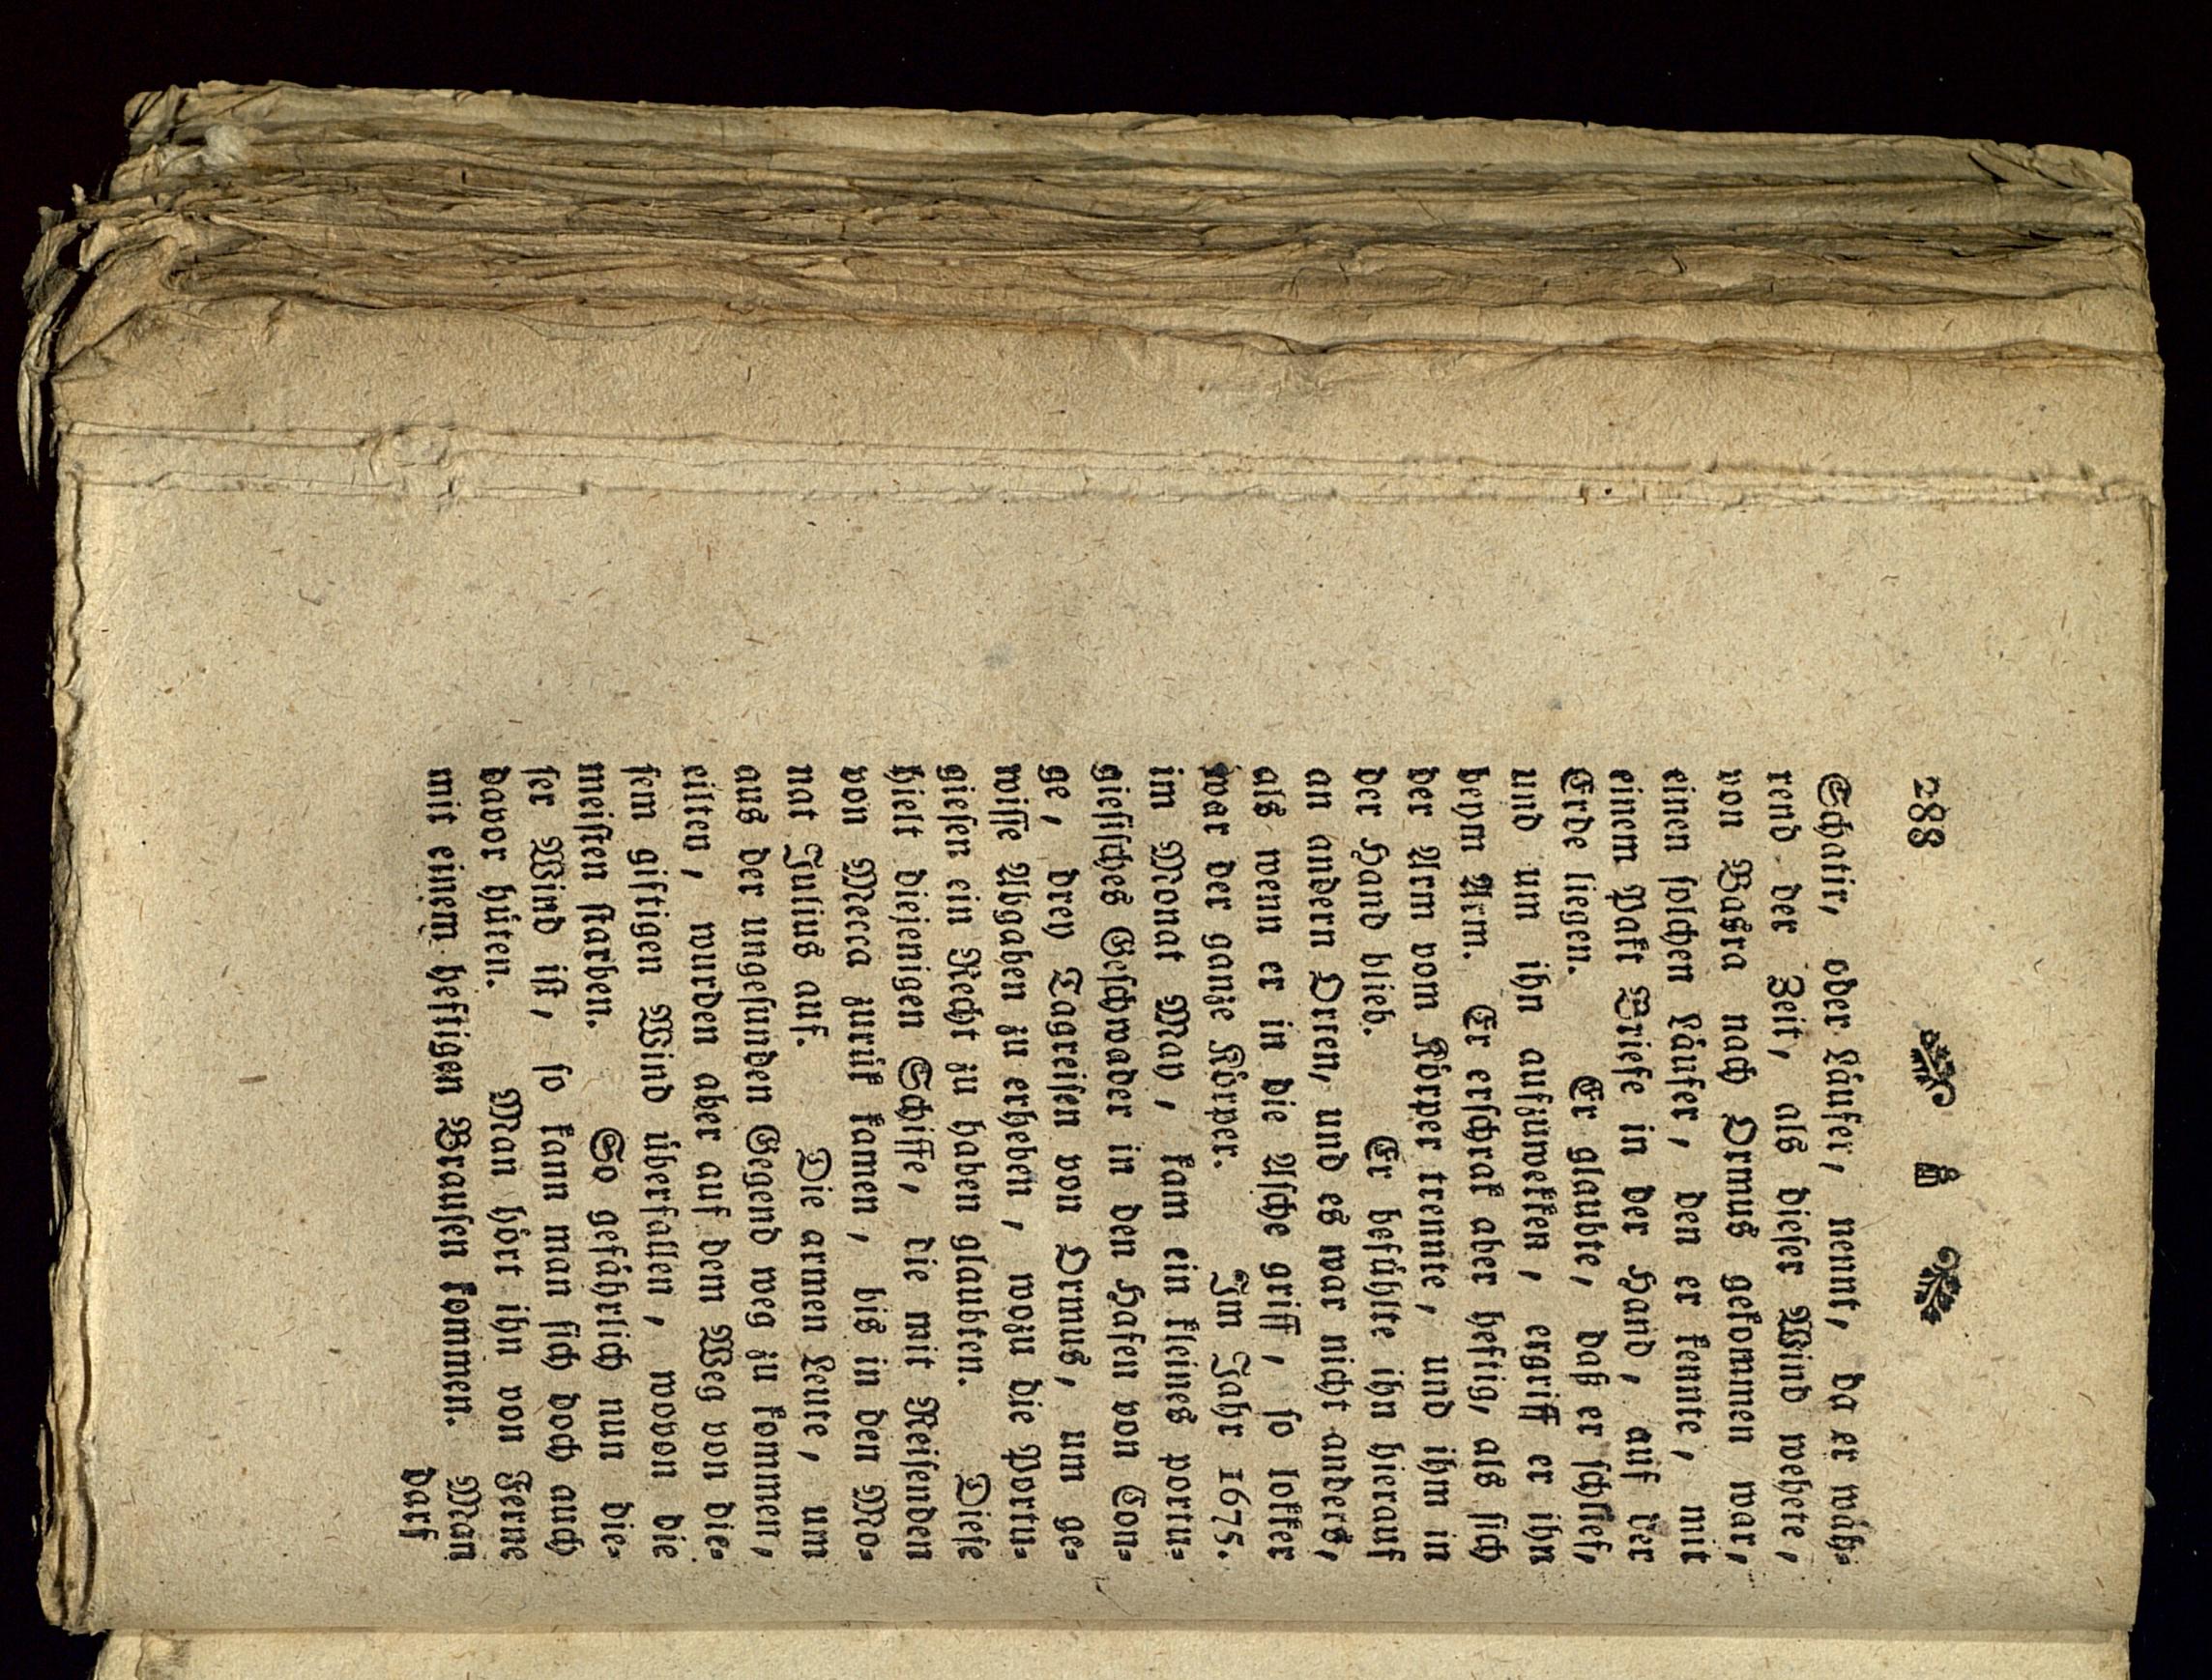 288
Schatir, oder Läufer, nennt, da er wäh-
rend der Zeit, als dieser Wind wehete,
von Basra nach Ormus gekommen war,
einen solchen Läufer, den er kennte, mit
einem Pakt Briefe in der Hand, auf der
Erde liegen. Er glaubte, daß er schlief,
und um ihn aufzuwekken, ergriff er ihn
beym Arm. Er erschrak aber heftig, als sich
der Arm vom Körper trennte, und ihm in
der Hand blieb. Er befühlte ihn hierauf
an andern Orten, und es war nicht anders,
als wenn er in die Asche griff, so lokker
war der ganze Körper. Im Jahr 1675.
im Monat May, kam ein kleines portu-
giesisches Geschwader in den Hafen von Con-
ge, drey Tagreisen von Ormus, um ge-
wisse Abgaben zu erheben, wozu die Portu-
giesen ein Recht zu haben glaubten. Diese
hielt diejenigen Schiffe, die mit Reisenden
von Mecca zurük kamen, bis in den Mo-
nat Julius auf. Die armen Leute, um
aus der ungesunden Gegend weg zu kommen,
eilten, wurden aber auf dem Weg von die-
sem giftigen Wind überfallen, wovon die
meisten starben. So gefährlich nun die-
ser Wind ist, so kann man sich doch auch
davor hüten. Man hört ihn von Ferne
mit einem heftigen Brausen kommen. Man
darf